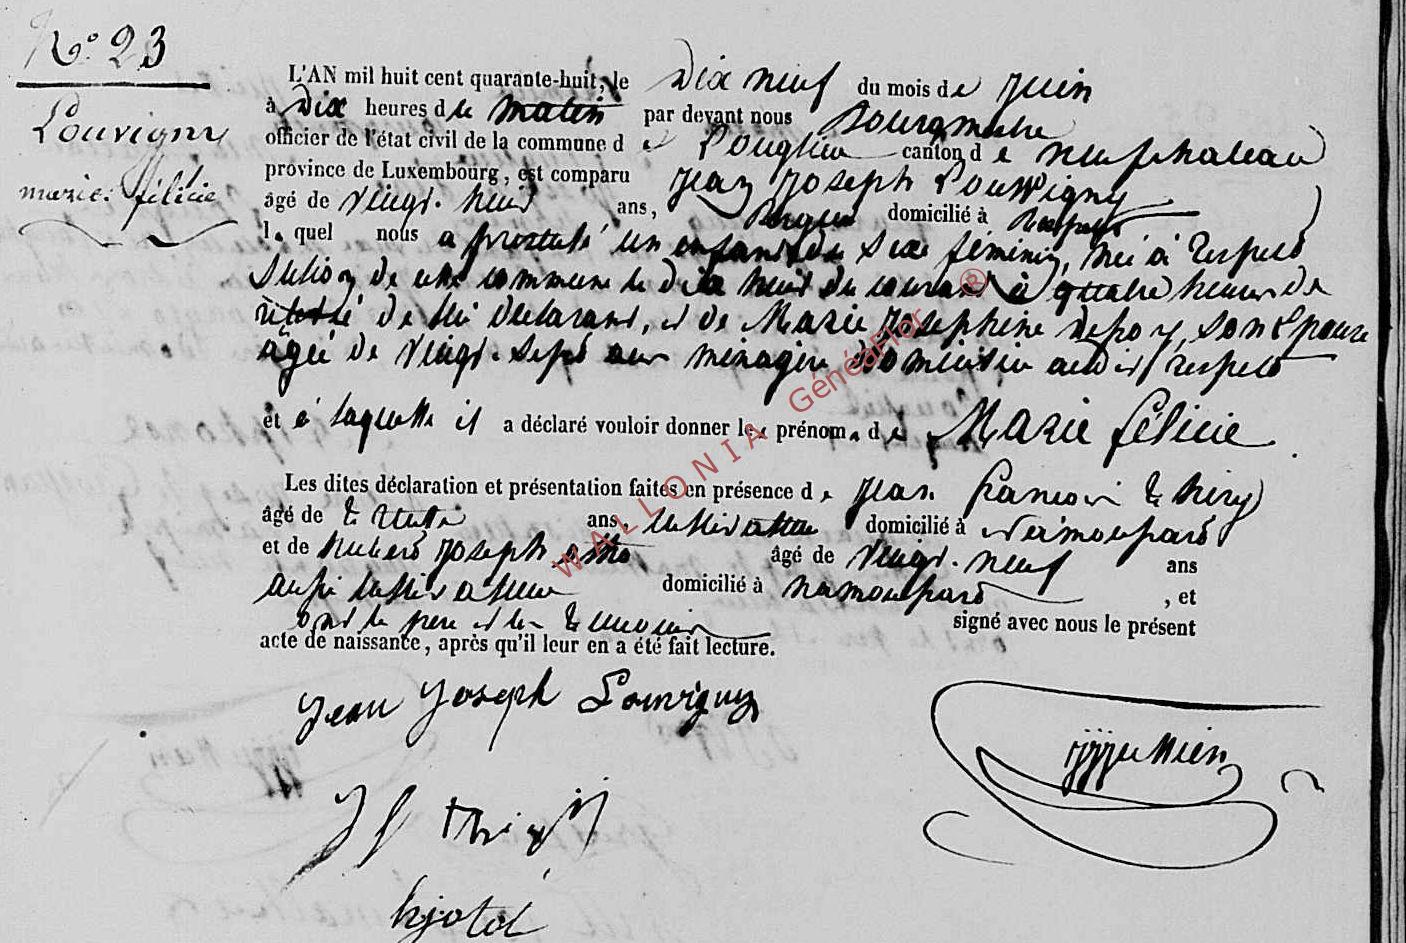 N° 23
Louvigny
marie félicie
L'AN mil huit cent quarante-huit, le dix neuf du mois de juin
à dix heures de matin par devant nous Bourgmestre
officier de l'état civil de la commune de Longlier canton de neufchateau
province de Luxembourg, est comparu jean joseph Louvigny
âgé de vingt-neuf ans, domicilié à Respelt
lequel nous a présenté un enfant du sexe féminin, née à respelt
section de cette commune le dix huit du courant à quatre heures de
de lui déclarant, et de Marie josephine son épouse
âgée de vingt-sept ans ménagère domiciliée audit respelt
et à laquelle il a déclaré vouloir donner les prénoms de Marie félicie
Les dites déclaration et présentation faites en présence de jean françois thiry
âgé de trente ans, cultivateur domicilié à Namoussart
et de hubert joseph âgé de vingt-neuf ans
aussi cultivateur domicilié à namoussart, et
ont le père et les témoins signé avec nous le présent
acte de naissance, après qu'il leur en a été fait lecture.
Jean Joseph Louvigny
J f thiry
WALLONIA GénéaFlor ®